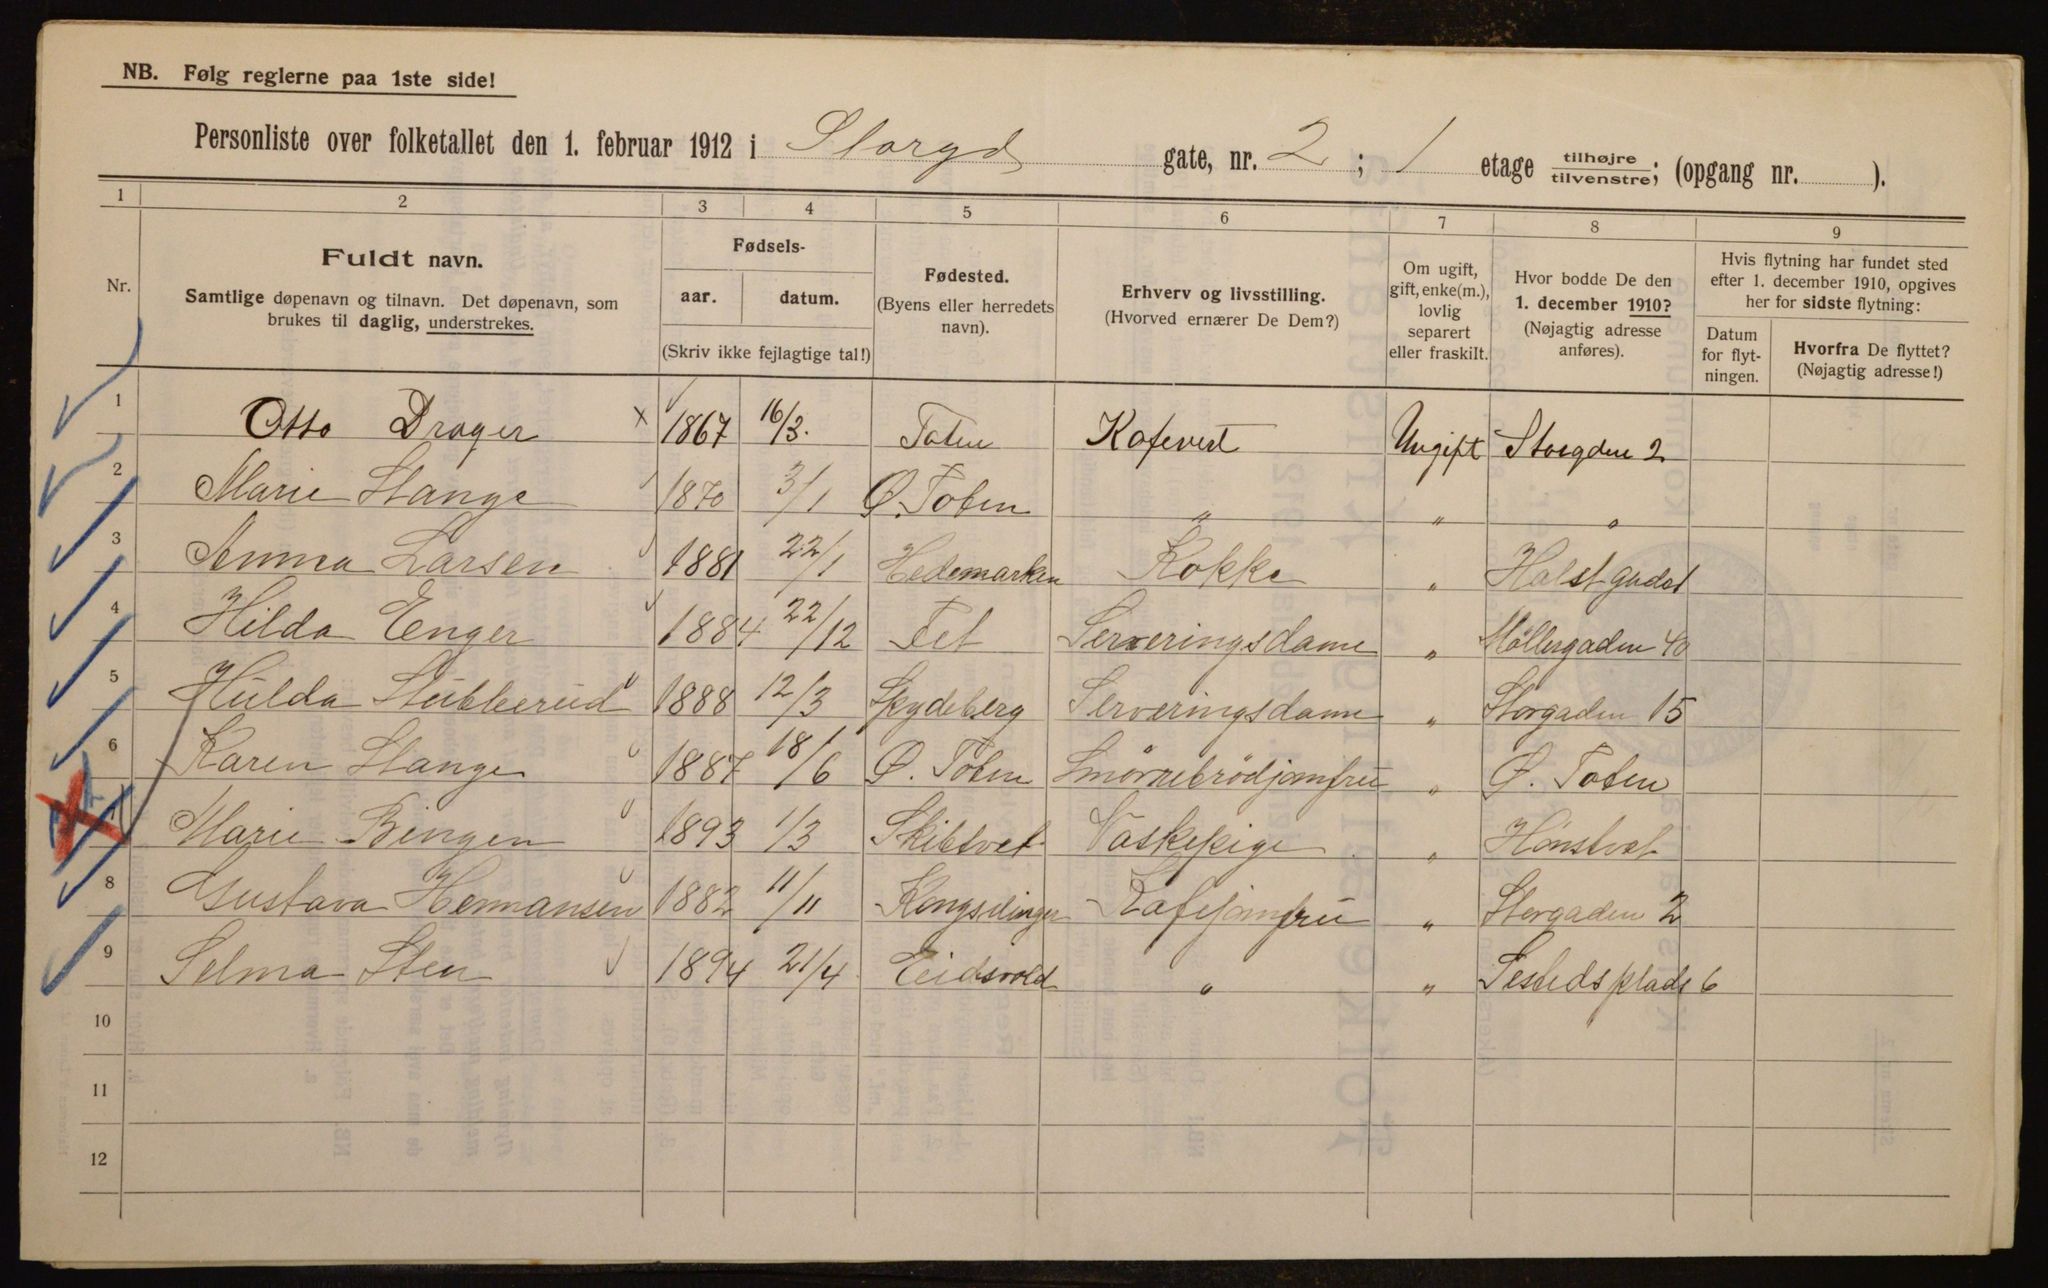 NB. Følg reglerne paa 1ste side!
Personliste over folketallet den 1. februar 1912 i Storgd gate, nr. 2 ; 1 etage tilhøjre tilvenstre; (opgang nr. ).
1 2 3 4 5 6 7 8 9
Nr.
Fuldt navn.
Samtlige døpenavn og tilnavn. Det døpenavn, som
brukes til daglig, understrekes.
Fødsels-
aar. datum.
(Skriv ikke fejlagtige tal!)
Fødested.
(Byens eller herredets
navn).
Erhverv og livsstilling.
(Hvorved ernærer De Dem?)
Om ugift,
gift, enke(m.),
lovlig
separert
eller fraskilt.
Hvor bodde De den
1. december 1910?
(Nøjagtig adresse
anføres).
Hvis flytning har fundet sted
efter 1. december 1910, opgives
her for sidste flytning:
Datum
for flyt-
ningen.
Hvorfra De flyttet?
(Nøjagtig adresse!)
1 Otto Drager x 1867 16/3. Toten Kafevert Ungift Storgden 2
2 Marie Stange 1870 3/1 Ø. Toten " " "
3 Anna Larsen 1881 22/1 Hedemarken Kokke " Holst gadet
4 Hilda Enger 1884 22/12 Fet Serveringsdame " Møllergaden 40
5 Hulda Stubberud 1888 12/3 Spydeberg Serveringsdame " Storgaden 15
6 Karen Stange 1887 18/6 Ø. Toten Smørrebrödjomfru " Ø. Toten
7 Marie Bingen 1893 1/3 Skibtvet Vaskepige "
8 Gustava Hermansen 1882 11/11 Kongsvinger Kafejomfru " Storgaden 2
9 Selma Sten 1894 21/4 Eidsvold " " Sesteds plads 6
10
11
12